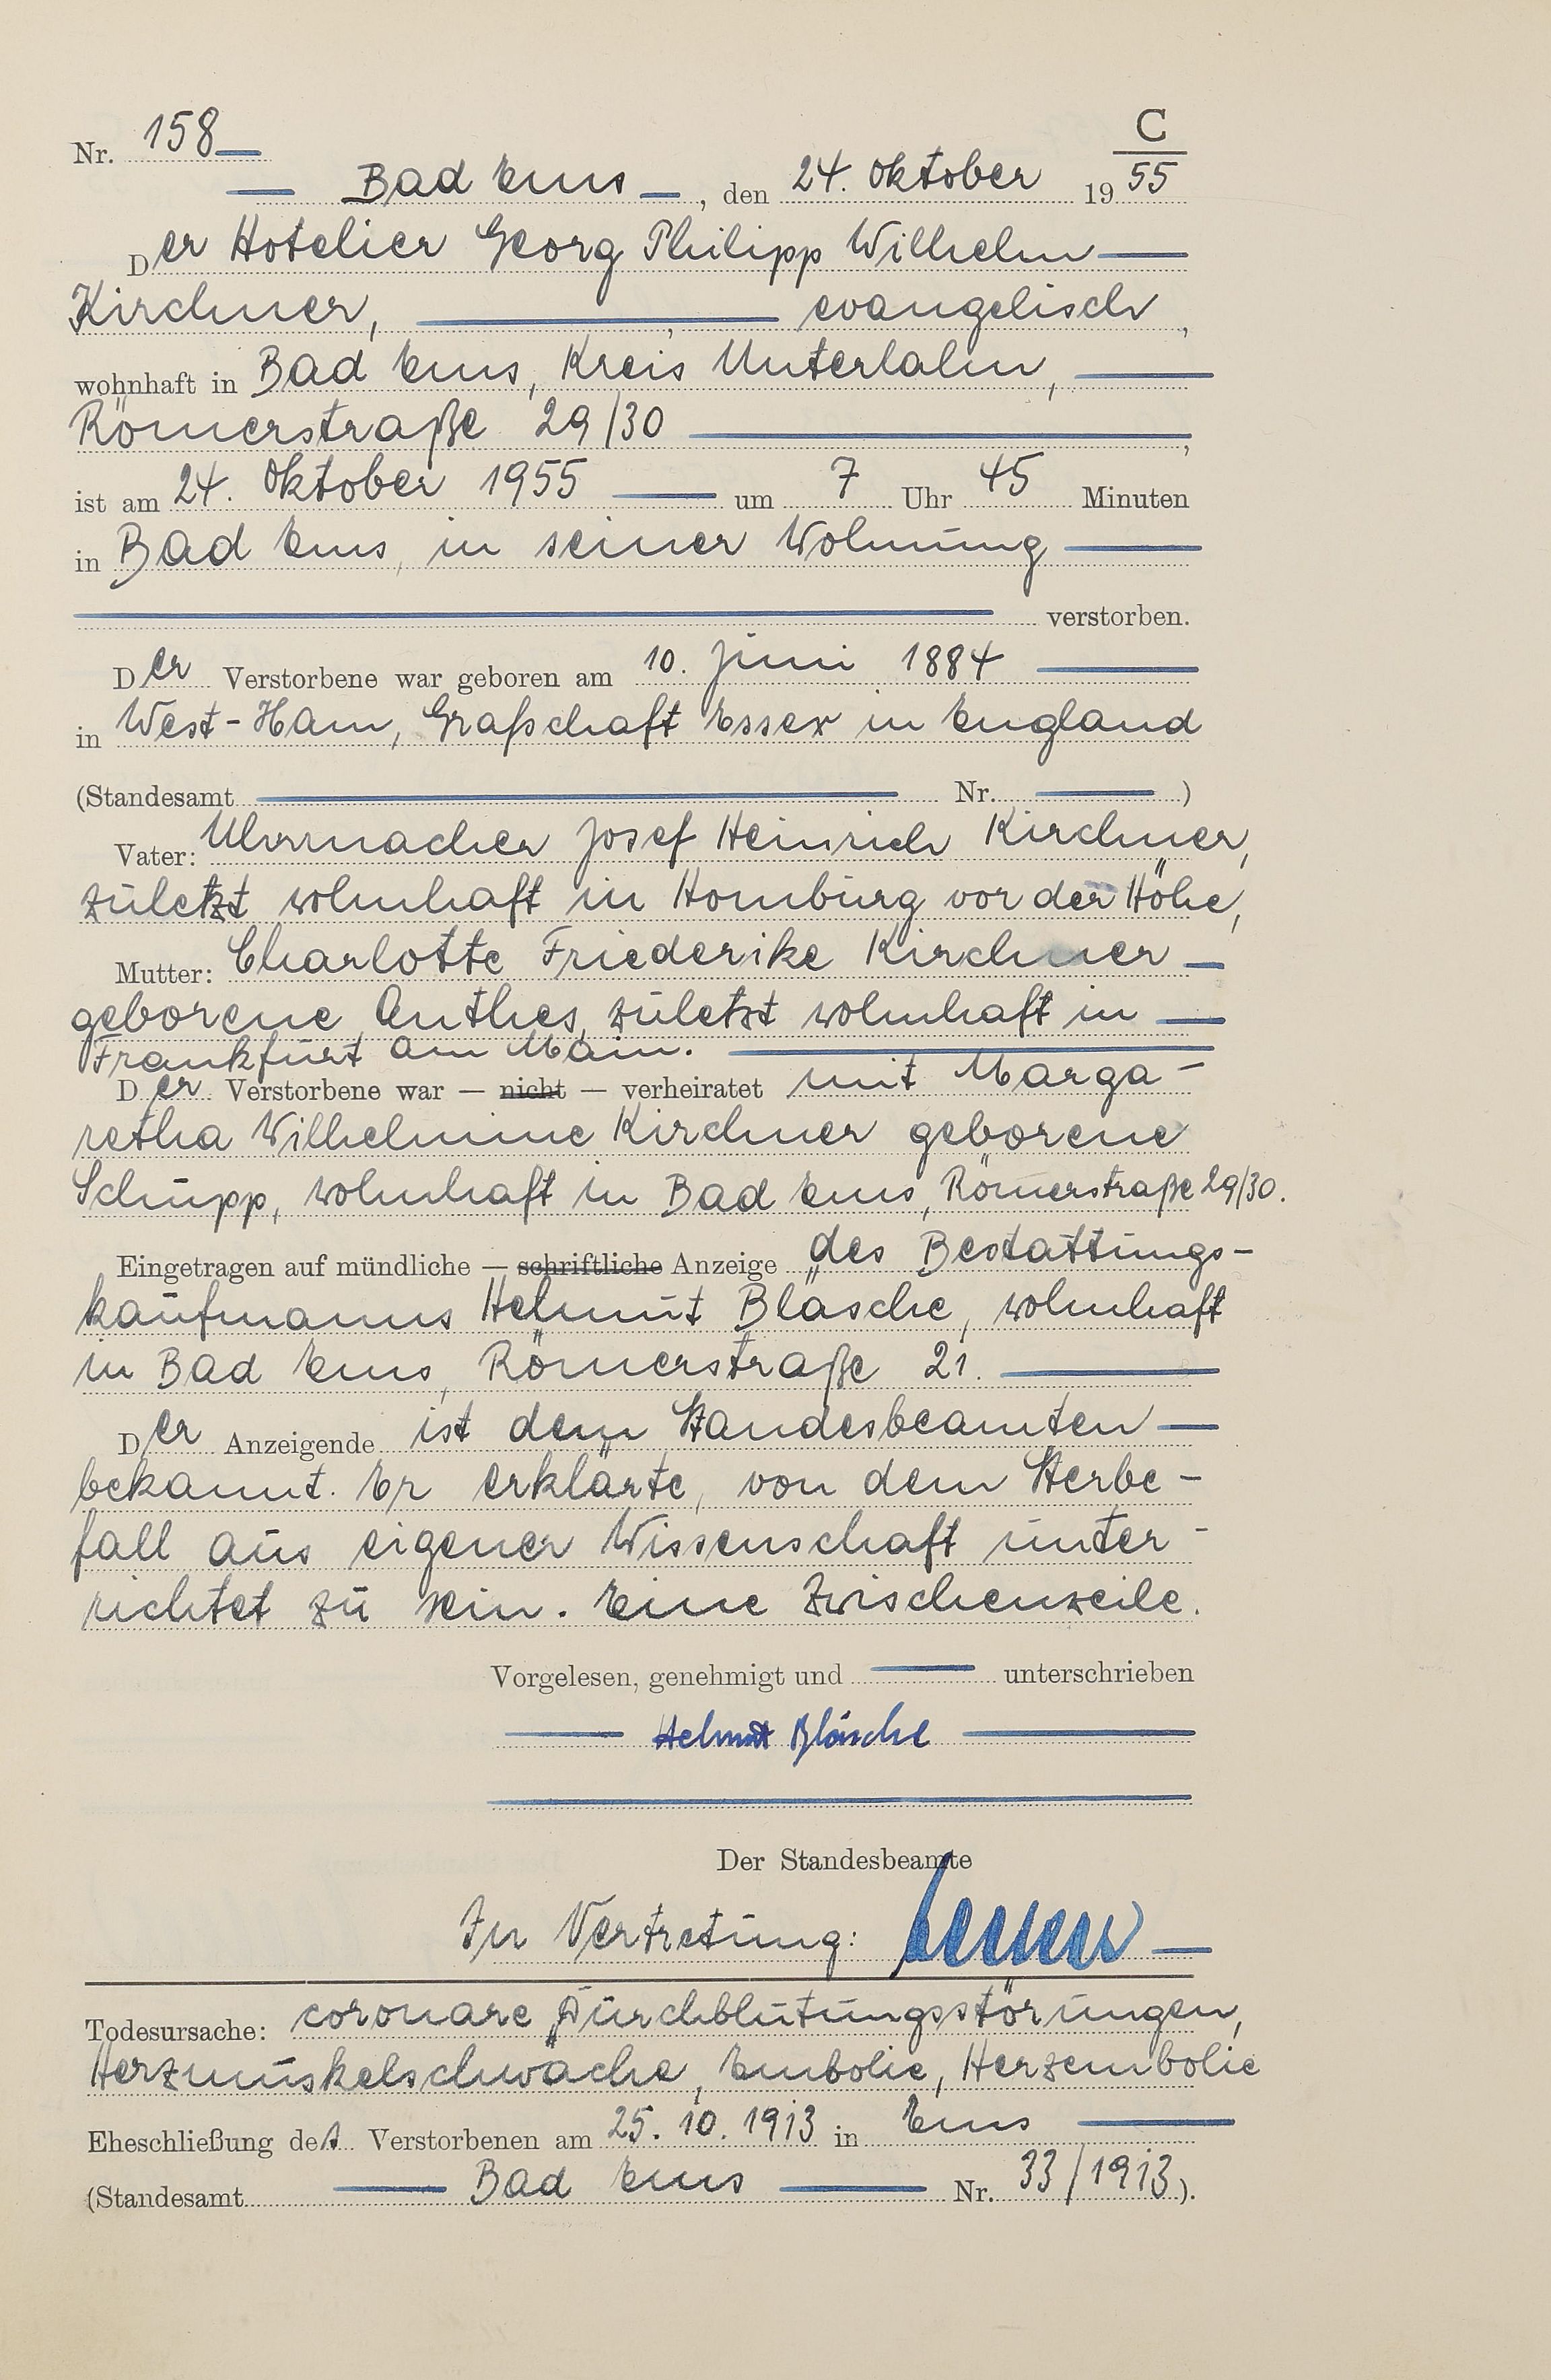 C
Nr. 158
Bad Ems, den 24. Oktober 1955
Der Hotelier Georg Philipp Wilhelm
Kirchner, , evangelisch,
wohnhaft in Bad Ems, Kreis Unterlahn,
Römerstraße 29/30,
ist am 24. Oktober 1955 um 7 Uhr 45 Minuten
in Bad Ems, in seiner Wohnung
verstorben.
Der Verstorbene war geboren am 10. Juni 1884
in West-Ham, Grafschaft Essex in England
(Standesamt Nr. )
Vater: Uhrmacher Josef Heinrich Kirchner,
zuletzt wohnhaft in Homburg vor der Höhe,
Mutter: Charlotte Friederike Kirchner
geborene Anthes, zuletzt wohnhaft in
Frankfurt am Main.
Der Verstorbene war — nicht — verheiratet mit Marga-
retha Wilhelmine Kirchner geborene
Schupp, wohnhaft in Bad Ems, Römerstraße 29/30.
Eingetragen auf mündliche — schriftliche Anzeige des Bestattungs-
kaufmanns Helmut Bläsche, wohnhaft
in Bad Ems, Römerstraße 21.
Der Anzeigende ist dem Standesbeamten
bekannt. Er erklärte, von dem Sterbe-
fall aus eigener Wissenschaft unter-
richtet zu sein. Eine Zwischenzeile.
Vorgelesen, genehmigt und unterschrieben
Helmut Bläsche
Der Standesbeamte
In Vertretung:
Todesursache: coronare Durchblutungsstörungen,
Herzmuskelschwäche, Embolie, Herzembolie
Eheschließung des Verstorbenen am 25.10.1913 in Ems
(Standesamt Bad Ems Nr. 33/1913).